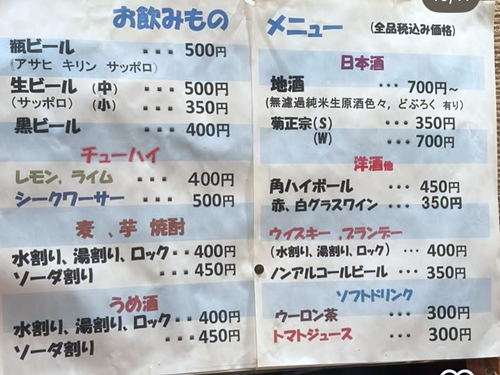 お飲みもの
瓶ビール ・・・ 500円
(アサヒ キリン サッポロ)
生ビール (中) ・・・ 500円
(サッポロ) (小) ・・・ 350円
黒ビール ・・・ 400円
チューハイ
レモン、ライム ・・・ 400円
シークワーサー ・・・ 500円
麦、芋 焼酎
水割り、湯割り、ロック・・400円
ソーダ割り ・・・450円
うめ酒
水割り、湯割り、ロック・・400円
ソーダ割り ・・・450円
メニュー (全品税込み価格)
日本酒
地酒 ・・・ 700円~
(無濾過純米生原酒色々, どぶろく 有り)
菊正宗(S) ・・・ 350円
(W) ・・・ 700円
洋酒他
角ハイボール ・・・ 450円
赤、白グラスワイン ・・・ 350円
ウィスキー、ブランデー
(水割り、湯割り、ロック) ・・・ 400円
ノンアルコールビール ・・・ 350円
ソフトドリンク
ウーロン茶 ・・・ 300円
トマトジュース ・・・ 300円